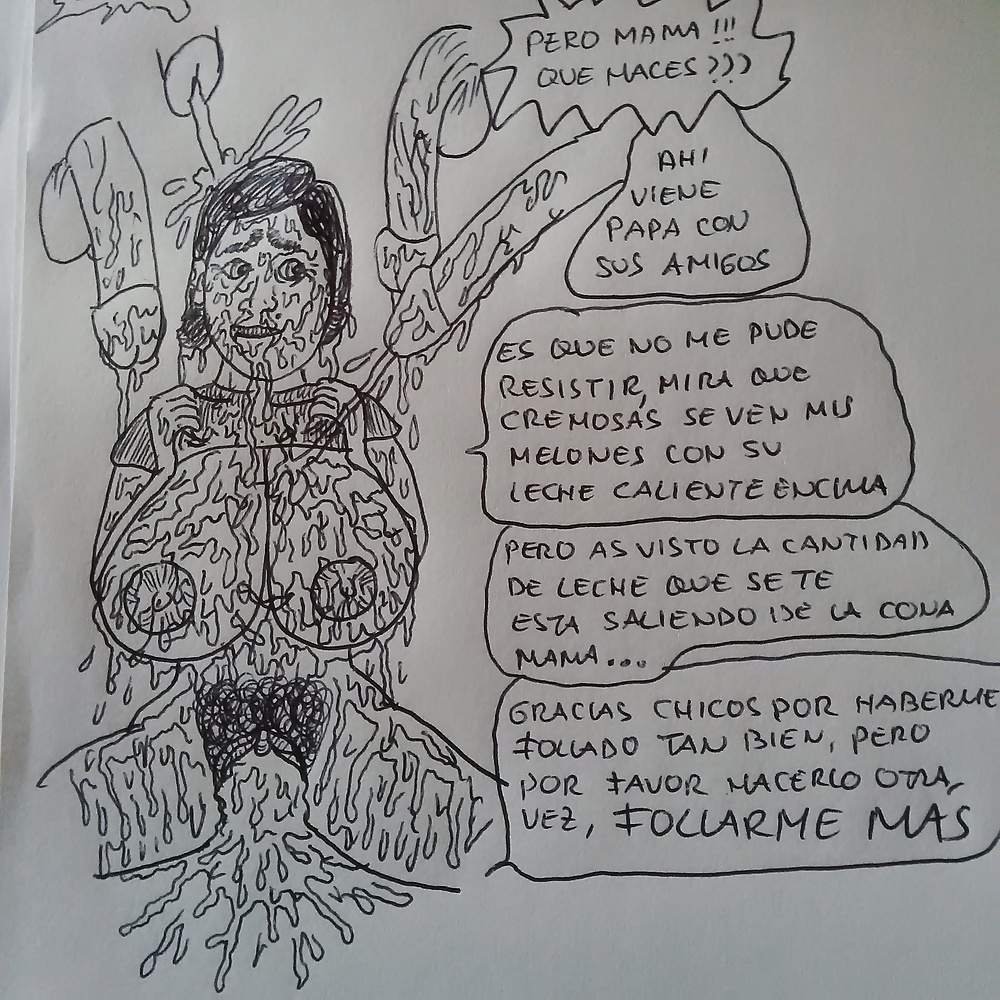 PERO MAMA !!!
QUE HACES ???
AHI
VIENE
PAPA CON
SUS AMIGOS
ES QUE NO ME PUDE
RESISTIR, MIRA QUE
CREMOSAS SE VEN MIS
MELONES CON SU
LECHE CALIENTE ENCIMA
PERO AS VISTO LA CANTIDAD
DE LECHE QUE SE TE
ESTA SALIENDO DE LA COÑA
MAMA...
GRACIAS CHICOS POR HABERME
FOLLADO TAN BIEN, PERO
POR FAVOR HACERLO OTRA
VEZ, FOLLARME MAS